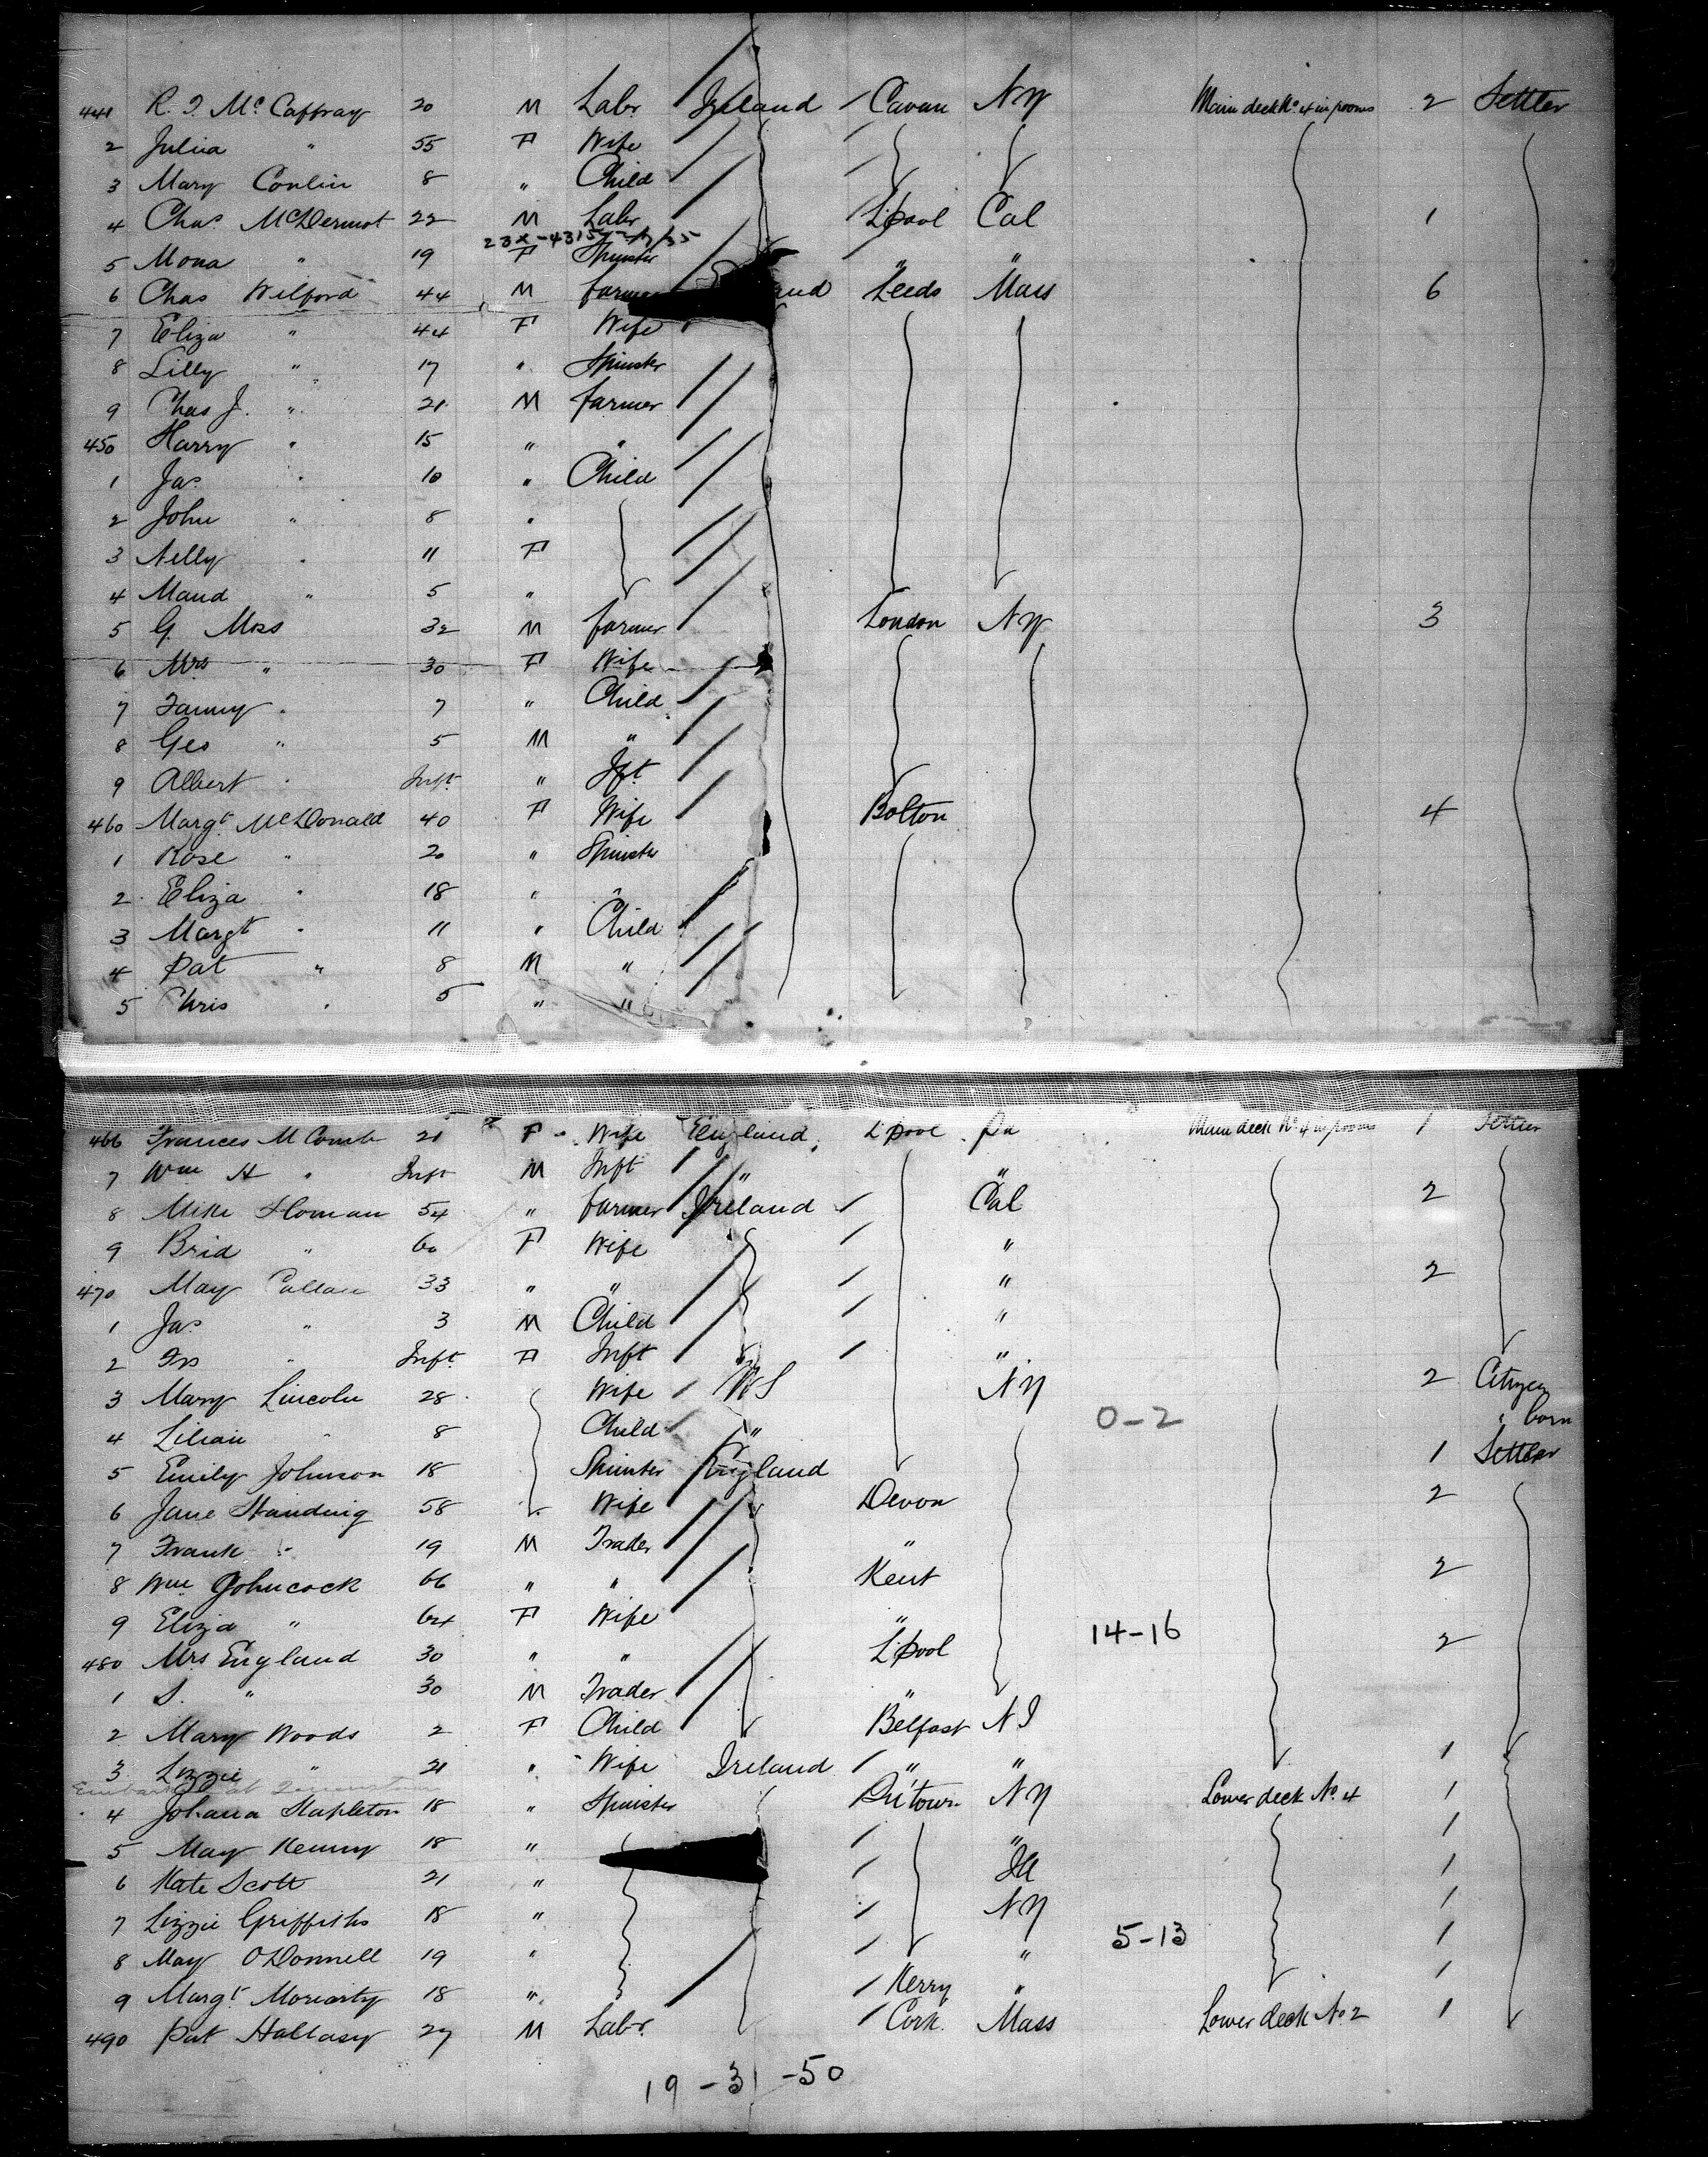 441 R. J. McCaffray 20 M Labr Ireland Cavan NY Main deck No 4 in rooms 2 Settler
2 Julia " 55 F Wife
3 Mary Conlin 8 " Child
4 Chas McDermot 22 M Labr L'pool Cal 1
23x-4315
5 Mona " 19 F Spinster " "
6 Chas Wilford 44 M farmer Leeds Mass 6
7 Eliza " 44 F Wife
8 Lilly " 17 " Spinster
9 Chas J. " 21 M farmer
450 Harry " 15 " "
1 Jas " 10 " Child
2 John " 8 "
3 Nelly " 11 F
4 Maud " 5 "
5 G. Moss 32 M farmer London NY 3
6 Mrs " 30 F Wife
7 Fanny " 7 " Child
8 Geo " 5 M "
9 Albert " Inft " Ift
460 Margt McDonald 40 F Wife Bolton 4
1 Rose " 20 " Spinster
2 Eliza " 18 " "
3 Margt " 11 " Child
4 Pat " 8 M "
5 Chris " 5 " "
466 Frances McComb 21 F Wife England L'pool Pa Main deck No 4 in rooms 1 Settler
7 Wm H " Inft M Inft " "
8 Mike Homan 54 " farmer Ireland Cal 2
9 Brid " 60 F Wife "
470 May Callan 33 " " " 2
1 Jas " 3 M Child "
2 Frs " Inft F Inft "
3 Mary Lincoln 28 Wife US NY 2 Citizen
4 Lilian " 8 Child " 0-2 " born
5 Emily Johnson 18 Spinster England 1 Settler
6 Jane Standing 58 Wife Devon 2
7 Frank " 19 M Trader "
8 Wm Johncock 66 " " Kent 2
9 Eliza " 64 F Wife " 14-16
480 Mrs England 30 " " L'pool 2
1 S. " 30 M Trader "
2 Mary Woods 2 F Child Belfast NJ
3 Lizzie " 21 " Wife Ireland " " 1
Embarked at Queenstown
4 Johana Stapleton 18 " Spinster Qu'town NY Lower deck No. 4 1
5 May Kenny 18 " " 1
6 Kate Scott 21 " Ill 1
7 Lizzie Griffiths 18 " NY 1
8 May O'Donnell 19 " " 5-13 1
9 Margt Moriarty 18 " Kerry " 1
490 Pat Hallasy 27 M Labr Cork Mass Lower deck No 2 1
19-31-50